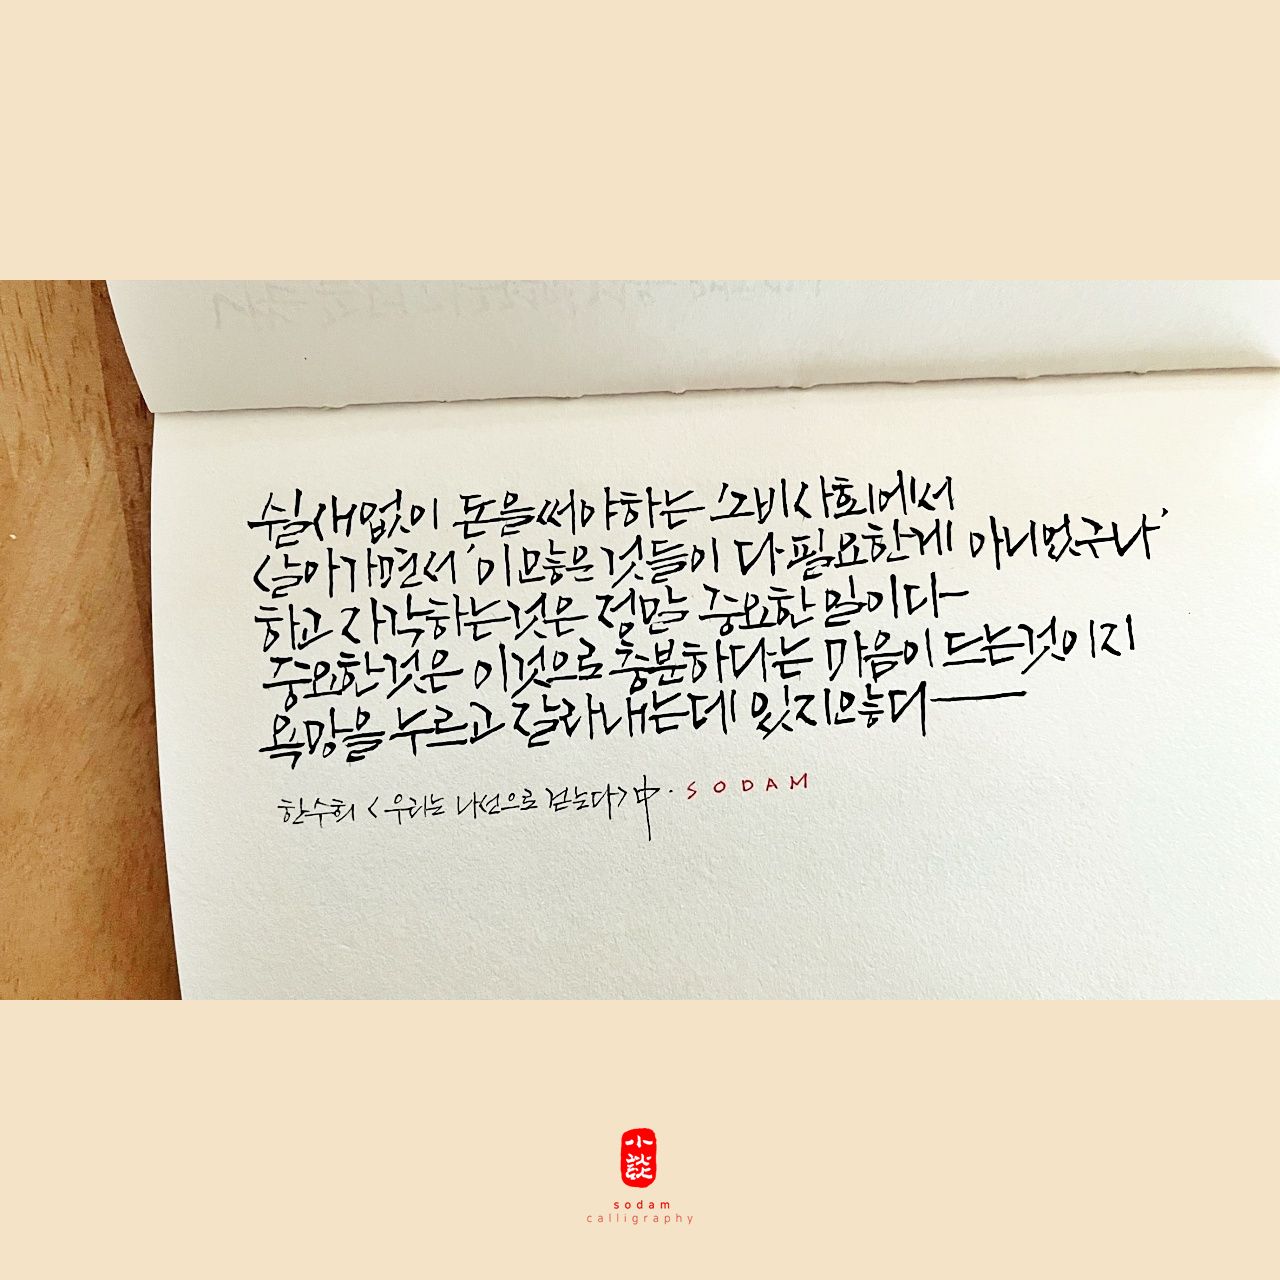 쉴새없이 돈을써야하는 소비사회에서
살아가면서 '이많은 것들이 다 필요한게 아니었구나'
하고 자각하는것은 정말 중요한 일이다
중요한것은 이것으로 충분하다는 마음이 드는것이지
욕망을 누르고 잘라내는데 있지않다
한수희 <우리는 나선으로 걷는다> 中 · SODAM
小談
sodam
calligraphy